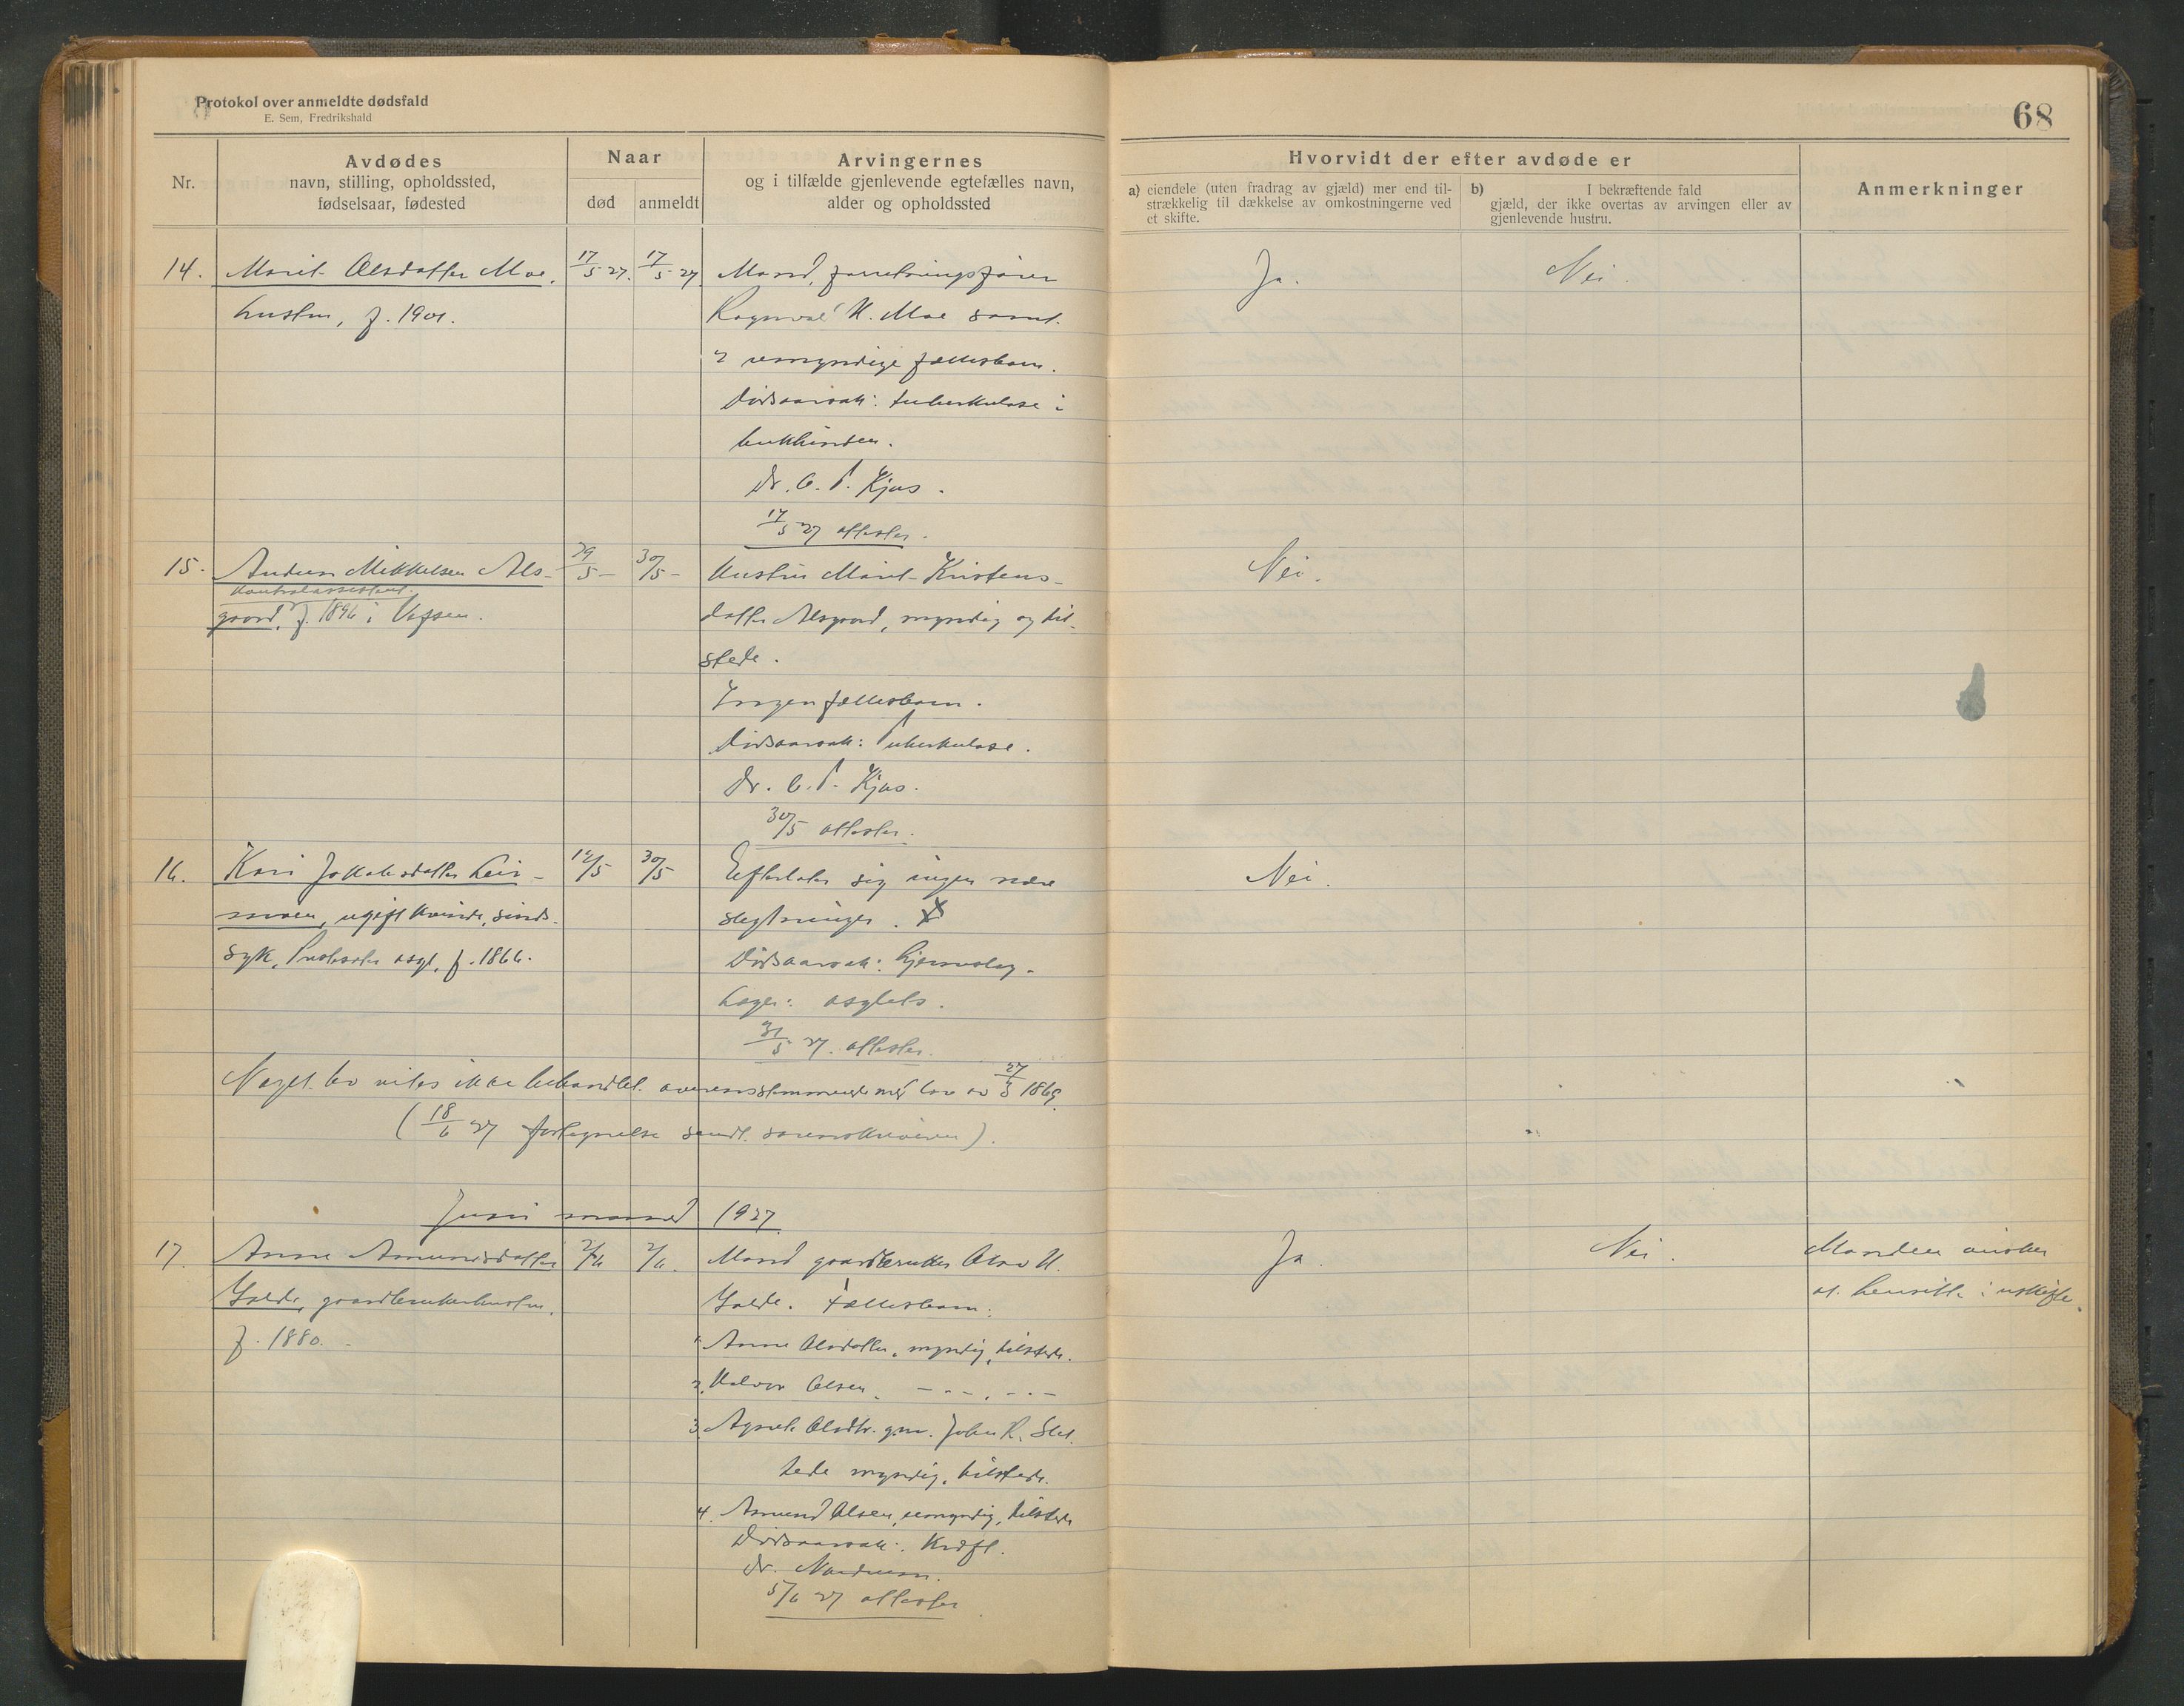 Protokol over anmeldte dødsfald
E. Sem, Fredrikshald
68
Nr.
Avdødes
navn, stilling, opholdssted,
fødselsaar, fødested
Naar
død
anmeldt
Arvingernes
og i tilfælde gjenlevende egtefælles navn,
alder og opholdssted
Hvorvidt der efter avdøde er
a) eiendele (uten fradrag av gjæld) mer end til-
strækkelig til dækkelse av omkostningerne ved
et skifte.
b) I bekræftende fald
gjæld, der ikke overtas av arvingen eller av
gjenlevende hustru.
Anmerkninger
14. Marit Olsdatter Moe, 17/5 27. 17/5 27. Mand, forretningsfører Ja. Nei.
hustru, f. 1901. Ragnvald H. Moe samt
2 umyndige fællesbarn.
Dødsaarsak: tuberkulose i
bukhinden.
Dr. C. T. Kjøs.
17/5 27 attester.
15. Anders Mikkelsen Als- 29/5 - 30/5 - Hustru Marit Kristens- Nei.
kontrolassistent
gaard, f. 1896 i Vefsen. datter Alsgaard, myndig og til-
stede.
Ingen fællesbarn.
Dødsaarsak: Tuberkulose.
Dr. C. T. Kjøs.
30/5 attester.
16. Kari Jokobsdatter Leir- 12/5 30/5 Efterlater sig ingen nære Nei.
moen, ugift kvinde, sinds- slegtninger.
syk, asyl, f. 1866. Dødsaarsak: Hjerneslag.
Læge: asylets.
31/5 27. attester.
Noget bo vites ikke behandlet overensstemmende med lov av 27/3 1869.
(18/6 27 fortegnelse sendt sorenskriveren).
Juni maaned 1927.
17. Anne Amundsdatter 2/6 2/6. Mand gaardbruker Olav H. Ja. Nei. Manden ønsker
gaardbrukerhustru, Fællesbarn: at hensitte i uskifte.
f. 1880.
1. Anne Olsdatter, myndig, tilstede.
2. Halvor Olsen, - - -, - - -
3. Agnete Olsdtr. g.m. John R. Slet-
tede myndig, tilstede.
4. Amund Olsen, umyndig, tilstede
Dødsaarsak: Kræft.
Dr.
5/6 27 attester